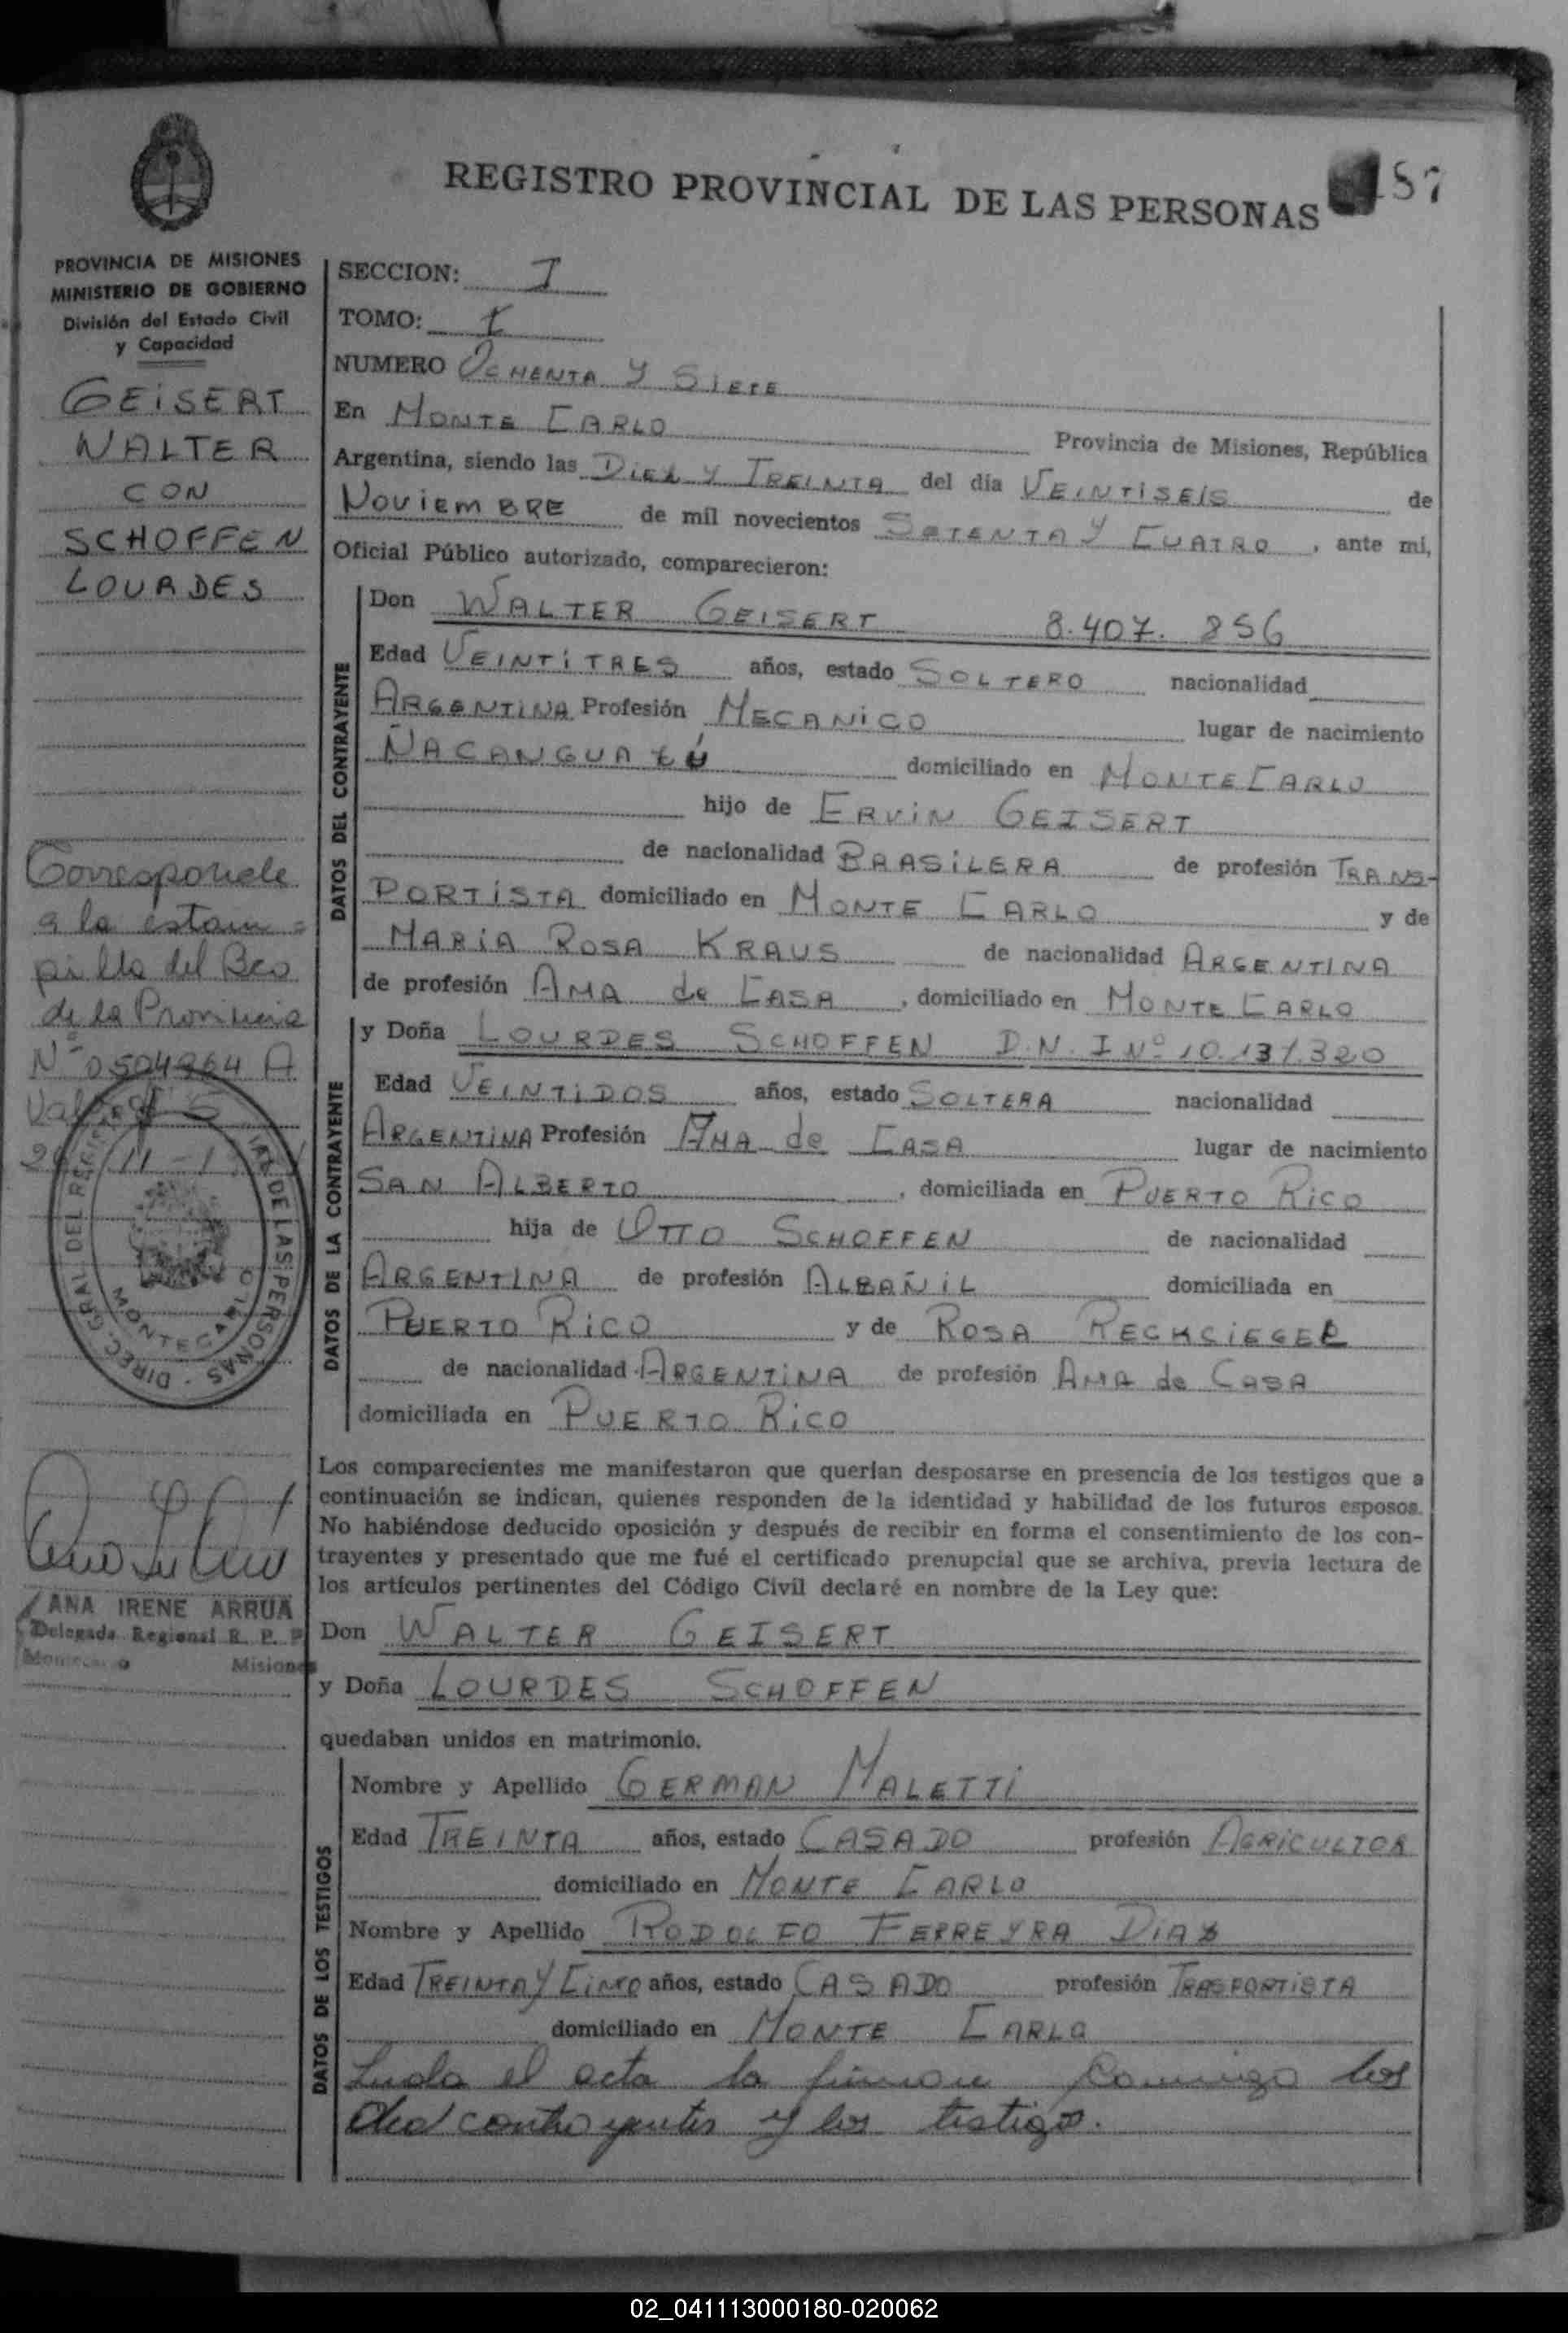 REGISTRO PROVINCIAL DE LAS PERSONAS
187
PROVINCIA DE MISIONES
MINISTERIO DE GOBIERNO
División del Estado Civil
y Capacidad
GEISERT
WALTER
CON
SCHOFFEN
LOURDES
Corresponde
a la estam=
pilla del Bco
de la Provincia
Nº 0504964 A
ANA IRENE ARRUA
Delegada Regional R. P. P
Misiones
DIREC. GRAL. DEL DE LAS PERSONAS
MONTECARLO
SECCION: I
TOMO: I
NUMERO OCHENTA Y SIETE
En MONTE CARLO Provincia de Misiones, República
Argentina, siendo las DIEZ Y TREINTA del día VEINTISEIS de
NOVIEMBRE de mil novecientos SETENTA Y CUATRO, ante mi,
Oficial Público autorizado, comparecieron:
DATOS DEL CONTRAYENTE
Don WALTER GEISERT 8.407.856
Edad VEINTITRES años, estado SOLTERO nacionalidad
ARGENTINA Profesión MECANICO lugar de nacimiento
ÑACANGUAZÚ domiciliado en MONTECARLO
hijo de ERVIN GEISERT
de nacionalidad BRASILERA de profesión TRANS-
PORTISTA domiciliado en MONTE CARLO y de
MARIA ROSA KRAUS de nacionalidad ARGENTINA
de profesión AMA de CASA, domiciliado en MONTE CARLO
DATOS DE LA CONTRAYENTE
y Doña LOURDES SCHOFFEN D.N.I Nº 10.131.320
Edad VEINTIDOS años, estado SOLTERA nacionalidad
ARGENTINA Profesión AMA de CASA lugar de nacimiento
SAN ALBERTO, domiciliada en PUERTO RICO
hija de OTTO SCHOFFEN de nacionalidad
ARGENTINA de profesión ALBAÑIL domiciliada en
PUERTO RICO y de ROSA RECKCIEGEL
de nacionalidad ARGENTINA de profesión AMA de CASA
domiciliada en PUERTO RICO
Los comparecientes me manifestaron que querían desposarse en presencia de los testigos que a
continuación se indican, quienes responden de la identidad y habilidad de los futuros esposos.
No habiéndose deducido oposición y después de recibir en forma el consentimiento de los con-
trayentes y presentado que me fué el certificado prenupcial que se archiva, previa lectura de
los artículos pertinentes del Código Civil declaré en nombre de la Ley que:
Don WALTER GEISERT
y Doña LOURDES SCHOFFEN
quedaban unidos en matrimonio.
DATOS DE LOS TESTIGOS
Nombre y Apellido GERMAN MALETTI
Edad TREINTA años, estado CASADO profesión AGRICULTOR
domiciliado en MONTE CARLO
Nombre y Apellido RODOLFO FERREYRA DIAZ
Edad TREINTA Y CINCO años, estado CASADO profesión TRASPORTISTA
domiciliado en MONTE CARLO
Leida el acta la firman conmigo los
contrayentes y los testigos.
02_041113000180-020062